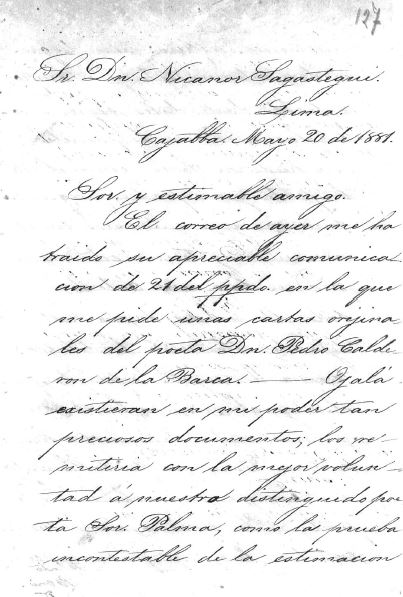 127
Sr. Dn. Nicanor Sagastegui.
Lima.
Cajabba. Mayo 20 de 1881.
Sor. y estimable amigo.
El correo de ayer me ha
traido su apreciable comunica
cion de 21 del ppdo. en la que
me pide unas cartas orijina
les del poeta Dn. Pedro Calde
ron de la Barca. — Ojalá
existieran en mi poder tan
preciosos documentos; los re
mitiria con la mejor volun-
tad á nuestro distinguido poe
ta Sor. Palma, como la prueba
incontestable de la estimacion